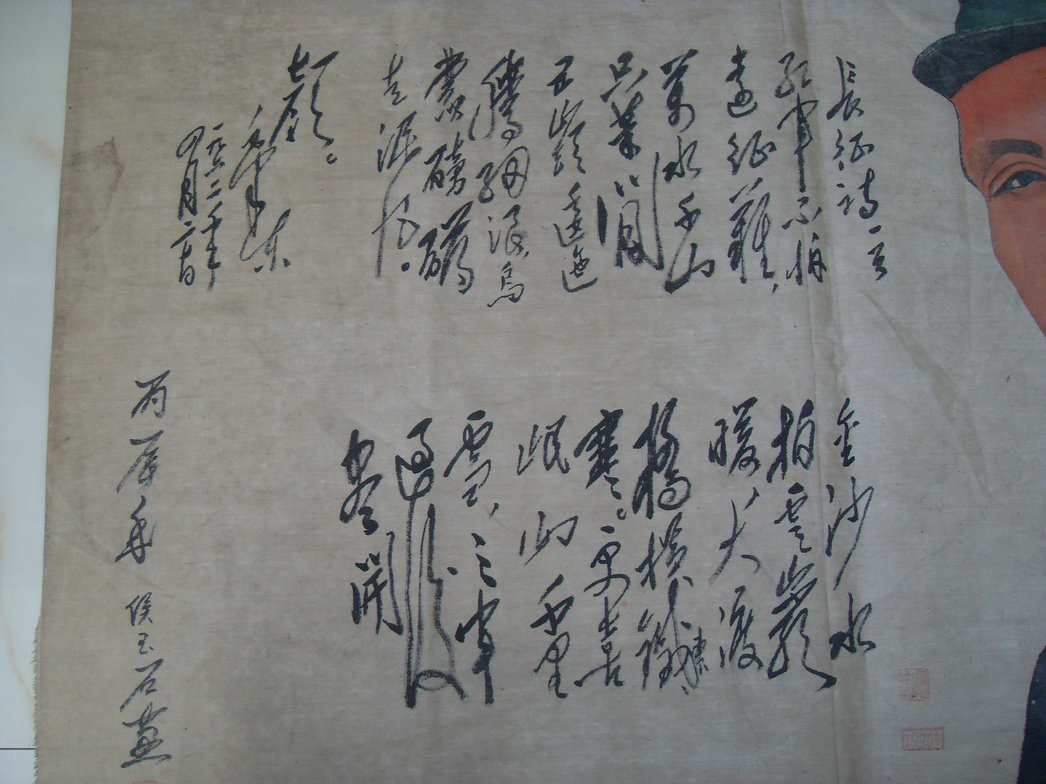 長征詩一首
紅軍不怕
遠征難，
萬水千山
只等閒
五嶺逶迤
騰細浪烏
蒙磅礴
走泥丸。
金沙水
拍雲巖
暖大渡
橋橫鐵索
寒。更喜
岷山千里
雪，三軍
過後
盡開
顏。
毛澤東
一九六二年
四月二十日
侯玉石